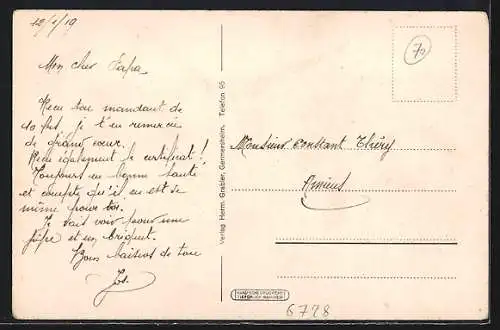 12/1/19
Mon cher Papa
Recu ton mandant de
10 fcs, je t'en remercie
de grand cœur.
Recu également le certificat!
Toujours en bonne santé
et compte qu'il en est de
même pour toi.
Je vais voir pour une
pipe et un briquet.
Bons baisers de ton
Jos.
Verlag Herm. Grabler, Germersheim. Telefon 95
70
Monsieur Constant Thiéry
Amiens
6728